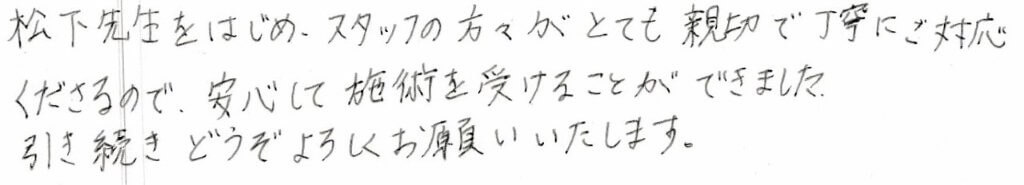 松下先生をはじめ、スタッフの方々がとても親切で丁寧にご対応
くださるので、安心して施術を受けることができました。
引き続きどうぞよろしくお願いいたします。